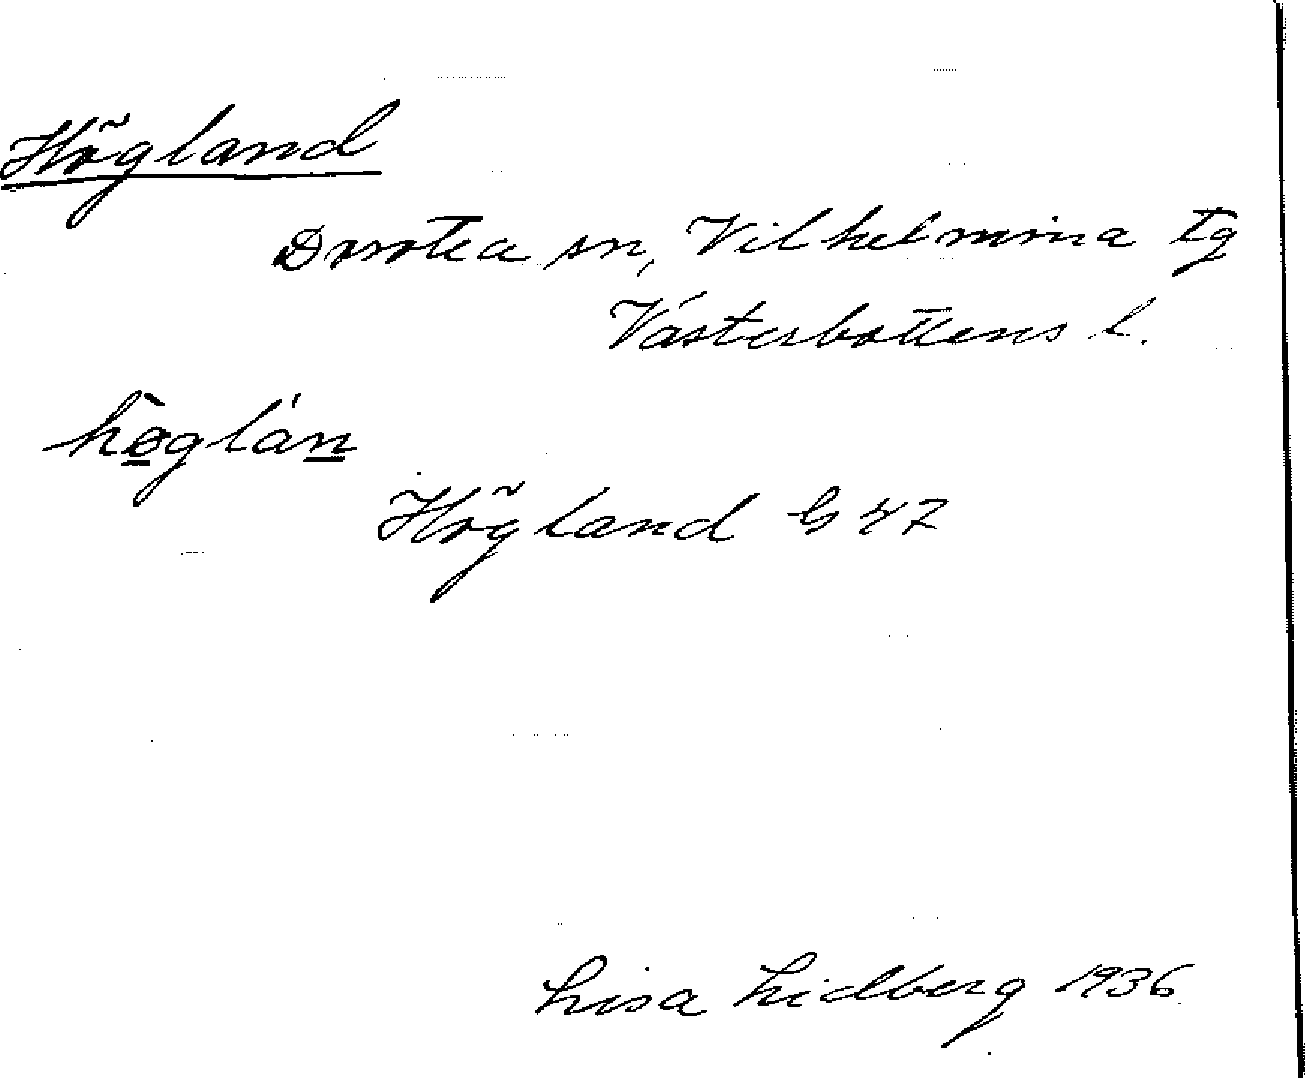 Högland
Dorotea sn, Vilhelmina tg
Västerbottens l.
hö̀glán
Högland G 47
Lisa Lidberg 1936